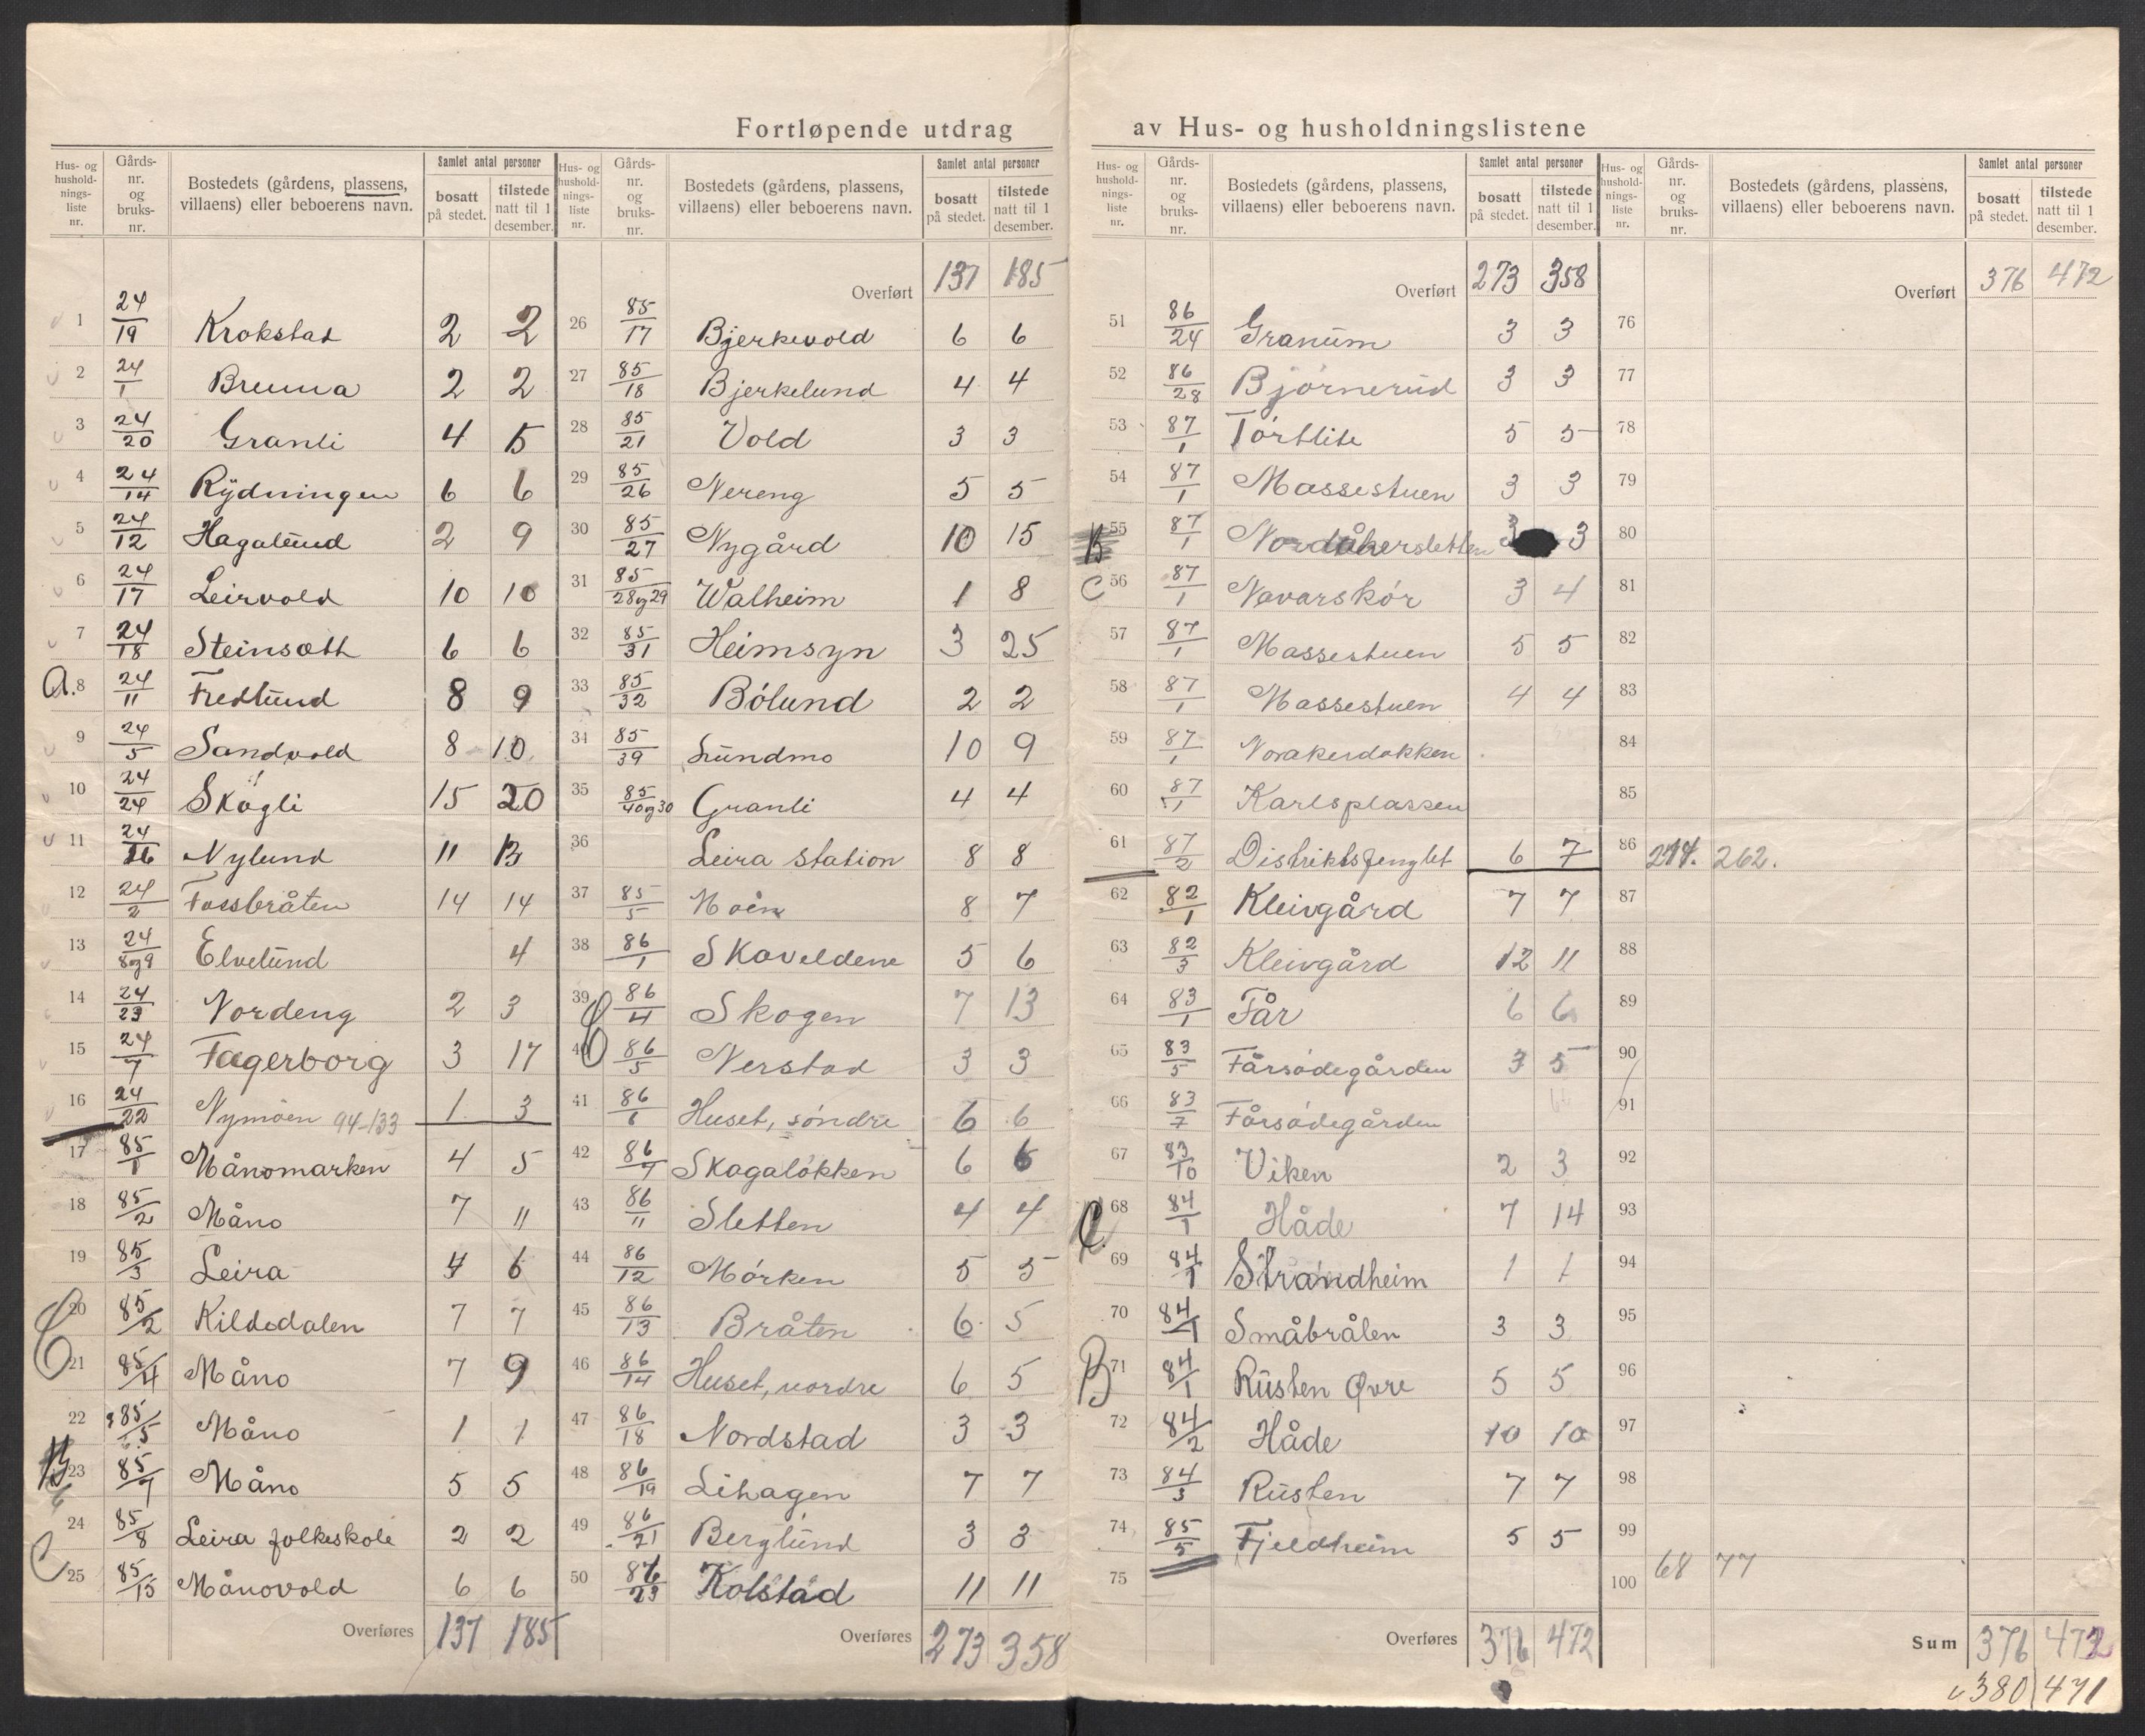 Fortløpende utdrag av Hus- og husholdningslistene
Hus- og hushold- nings- liste nr. | Gårds- nr. og bruks- nr. | Bostedets (gårdens, plassens, villaens) eller beboerens navn. | Samlet antal personer | bosatt på stedet. | tilstede natt til 1 desember.
1 24/19 Krokstad 2 2
2 24/1 Brenna 2 2
3 24/20 Granli 4 5
4 24/14 Rydningen 6 6
5 24/12 Hagalund 2 9
6 24/17 Leirvold 10 10
7 24/18 Steinsæth 6 6
A. 8 24/11 Fredlund 8 9
9 24/5 Sandvold 8 10
10 24/24 Skogli 15 20
11 24/26 Nylund 11 13
12 24/2 Fossbråten 14 14
13 24/8og9 Elvelund 4
14 24/23 Nordeng 2 3
15 24/7 Fagerborg 3 17
16 24/22 Nymoen 94-133 1 3
17 85/1 Månomarken 4 5
18 85/2 Måno 7 11
19 85/3 Leira 4 6
C 20 85/2 Kildedalen 7 7
21 85/4 Måno 7 9
22 85/5 Måno 1 1
B 23 85/7 Måno 5 5
24 85/8 Leira folkeskole 2 2
C 25 85/15 Månovold 6 6
Overføres 137 185
Hus- og hushold- nings- liste nr. | Gårds- nr. og bruks- nr. | Bostedets (gårdens, plassens, villaens) eller beboerens navn. | Samlet antal personer | bosatt på stedet. | tilstede natt til 1 desember.
Overført 137 185
26 85/17 Bjerkevold 6 6
27 85/18 Bjerkelund 4 4
28 85/21 Vold 3 3
29 85/26 Nereng 5 5
30 85/27 Nygård 10 15
31 85/28og29 Walheim 1 8
32 85/31 Heimsyn 3 25
33 85/32 Bólund 2 2
34 85/39 Lundmo 10 9
35 85/40og30 Granli 4 4
36 Leira station 8 8
37 85/5 Moen 8 7
38 86/1 Skaveldene 5 6
39 86/4 Skogen 7 13
40 86/5 Nerstad 3 3
41 86/6 Huset, søndre 6 6
42 86/7 Skagaløkken 6 6
43 86/11 Sletten 4 4
44 86/12 Mórken 5 5
45 86/13 Bråten 6 5
46 86/14 Huset, nordre 6 5
47 86/18 Nordstad 3 3
48 86/19 Lihagen 7 7
49 86/21 Berglund 3 3
50 86/23 Kolstad 11 11
Overføres 273 358
Hus- og hushold- nings- liste nr. | Gårds- nr. og bruks- nr. | Bostedets (gårdens, plassens, villaens) eller beboerens navn. | Samlet antal personer | bosatt på stedet. | tilstede natt til 1 desember.
Overført 273 358
51 86/24 Granum 3 3
52 86/28 Bjórnerud 3 3
53 87/1 Tortlite 5 5
54 87/1 Massestuen 3 3
B 55 87/1 Nordåkersletten 3 3
C 56 87/1 Navarskór 3 4
57 87/1 Massestuen 5 5
58 87/1 Massestuen 4 4
59 87/1 Norakerdokken
60 87/1 Karlsplassen
61 87/2 Distriktsfenglet 6 7
62 82/1 Kleivgård 7 7
63 82/3 Kleivgård 12 11
64 83/1 Får 6 6
65 83/5 Fårsódegården 3 5
66 83/7 Fårsódegården
67 83/10 Viken 2 3
C. 68 84/1 Håde 7 14
69 84/1 Strandheim 1 1
70 84/1 Småbrålen 3 3
B 71 84/1 Rusten Øvre 5 5
72 84/2 Håde 10 10
73 84/3 Rusten 7 7
74 85/5 Fjeldheim 5 5
75
Overføres 376 472
Hus- og hushold- nings- liste nr. | Gårds- nr. og bruks- nr. | Bostedets (gårdens, plassens, villaens) eller beboerens navn. | Samlet antal personer | bosatt på stedet. | tilstede natt til 1 desember.
Overført 376 472
76
77
78
79
80
81
82
83
84
85
86 214. 262.
87
88
89
90
91
92
93
94
95
96
97
98
99
100 68 77
Sum 376 472
380 471